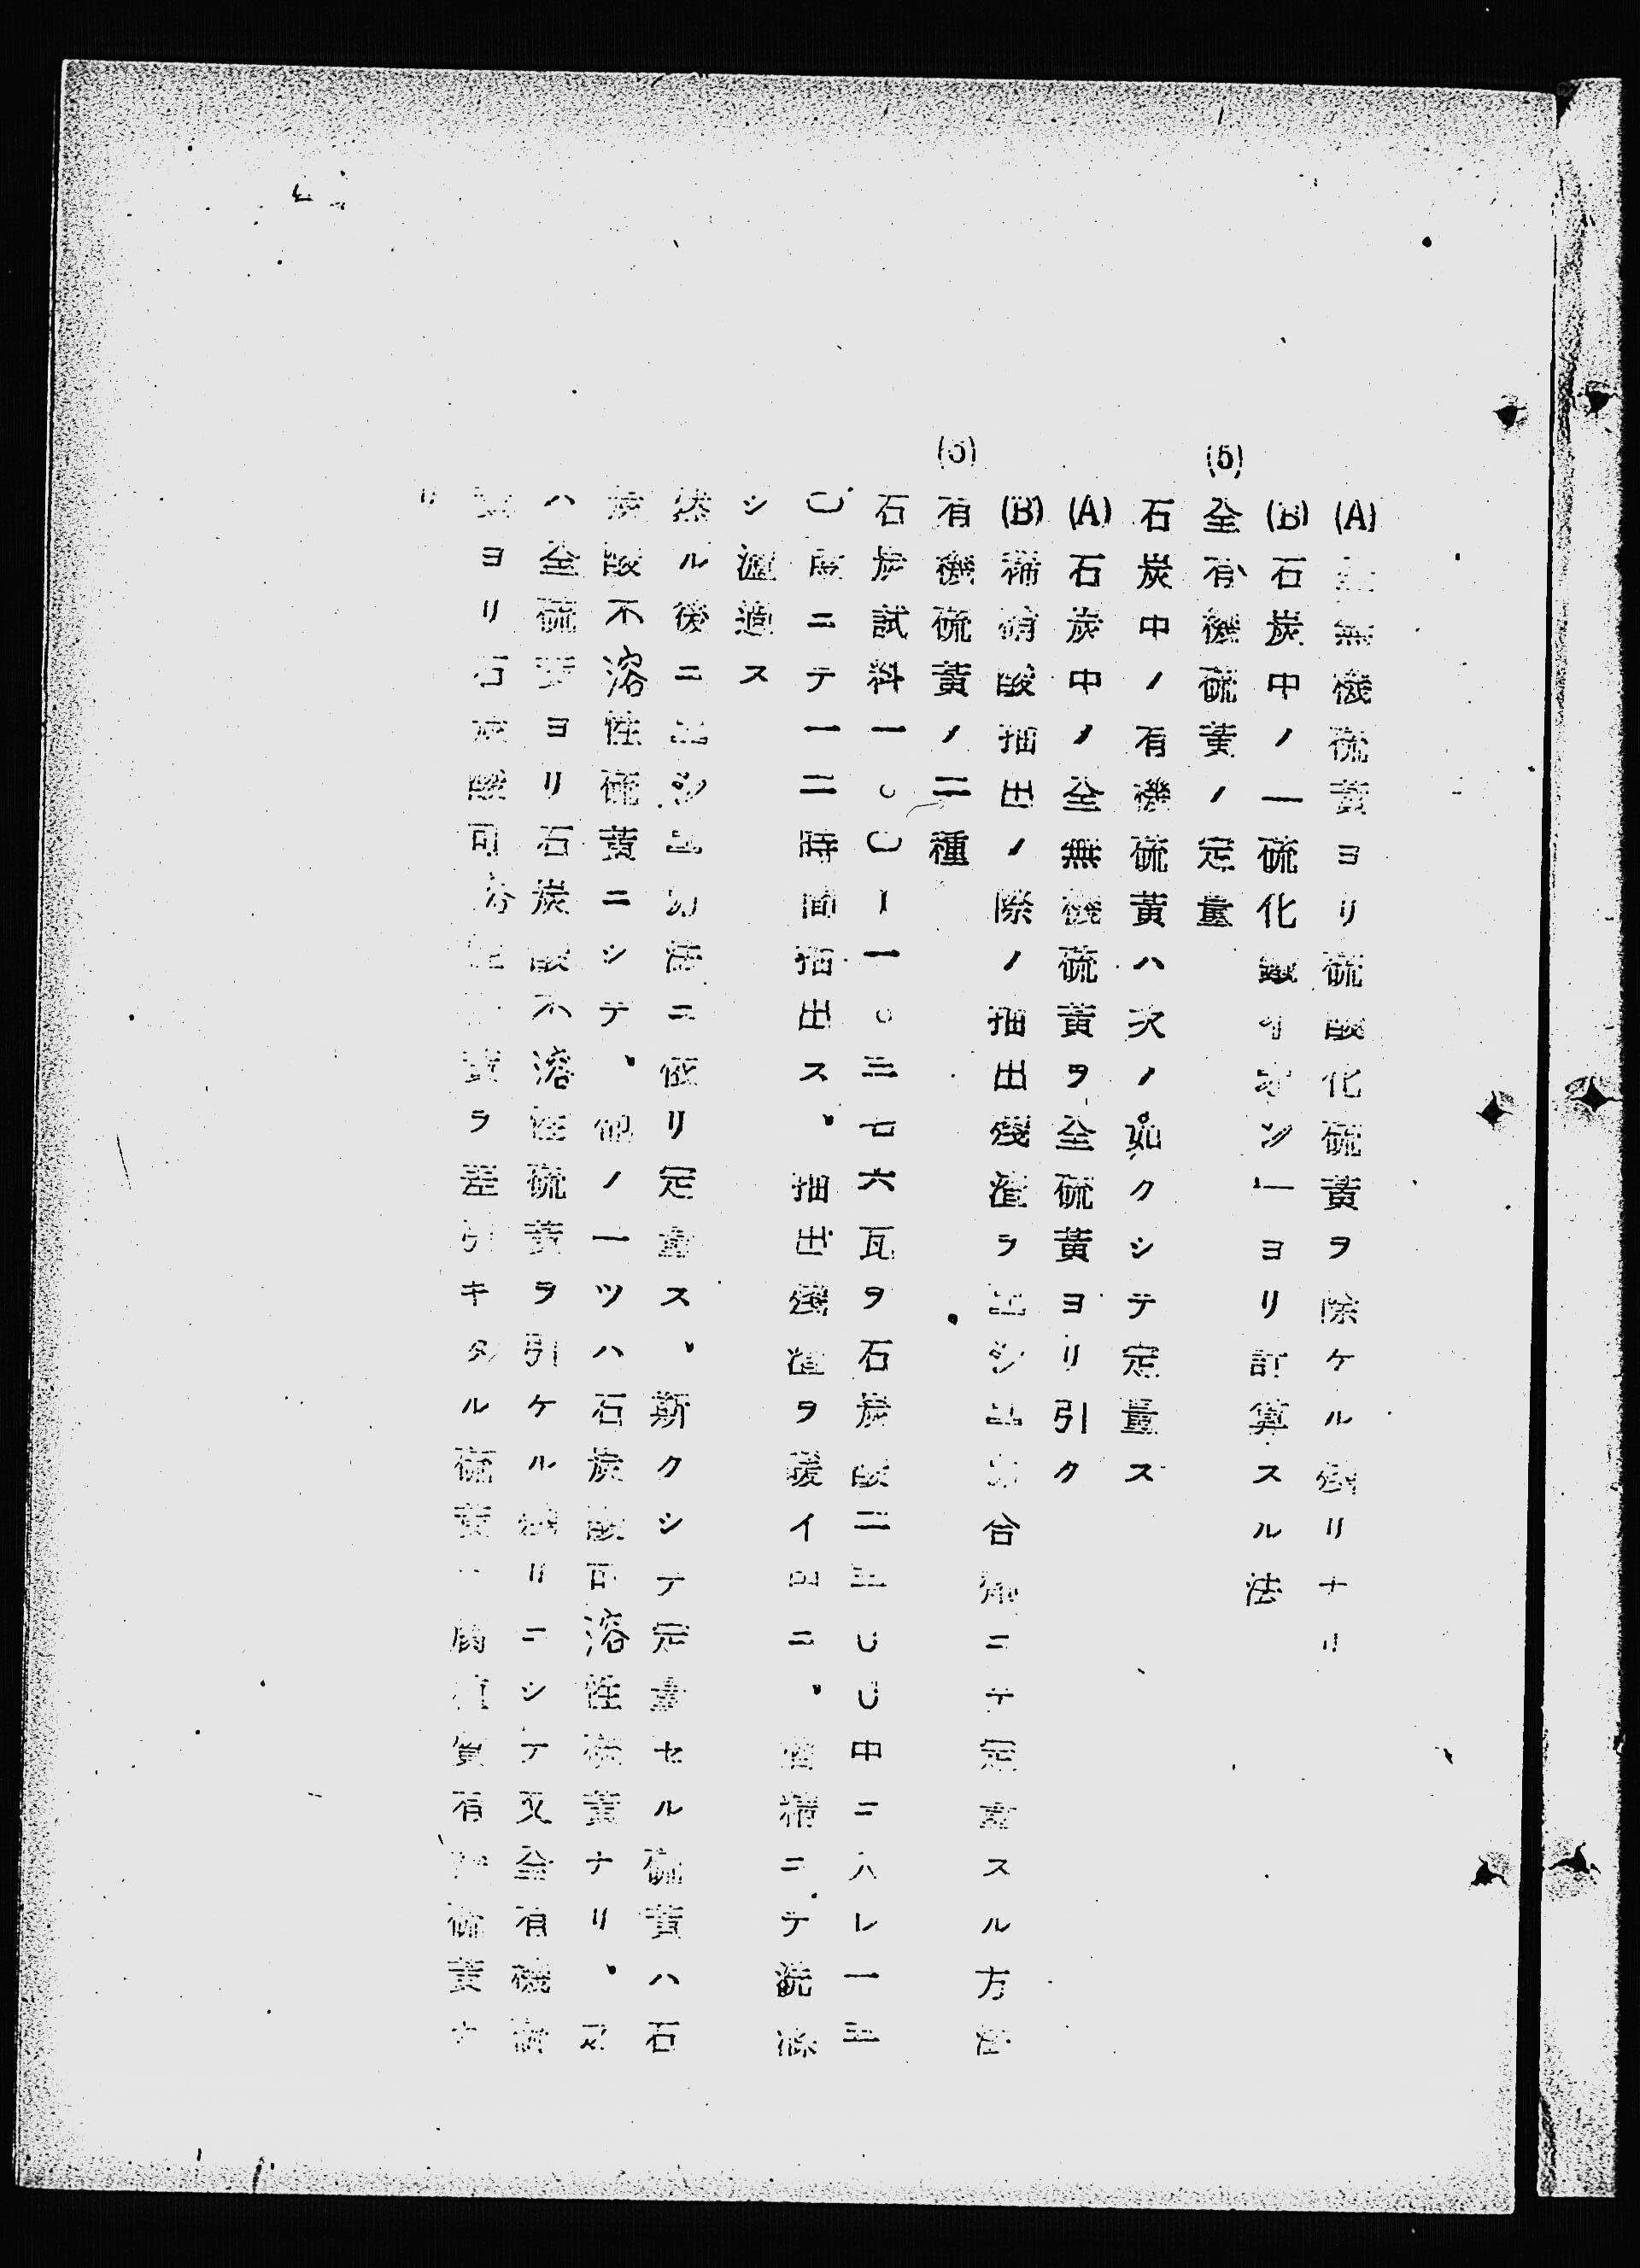 (A) 全無機硫黄ヨリ硫酸化硫黄ヲ除ケル残リナリ
(B) 石炭中ノ一硫化鐵イオン一ヨリ計算スル法
(5) 全有機硫黄ノ定量
石炭中ノ有機硫黄ハ次ノ如クシテ定量ス
(A) 石炭中ノ全無機硫黄ヲ全硫黄ヨリ引ク
(B) 稀硝酸抽出ノ際ノ抽出殘渣ヲエシュカ合剤ニテ定量スル方法
(6) 有機硫黄ノ二種
石炭試料一。〇ー一。三七六瓦ヲ石炭酸二五〇〇中ニ入レ一三
〇度ニテ一二時間抽出ス、抽出殘渣ヲ暖イ中ニ、酒精ニテ洗滌
シ濾過ス
然ル後ニエシュカ法ニ依リ定量ス、斯クシテ定量セル硫黄ハ石
炭酸不溶性硫黄ニシテ、他ノ一ツハ石炭酸可溶性硫黄ナリ、又
ハ全硫黄ヨリ石炭酸不溶性硫黄ヲ引ケル残リニシテ又全有機硫
黄ヨリ石炭酸可溶性硫黄ヲ差引キタル硫黄ハ腐植質有機硫黄ナ
リ